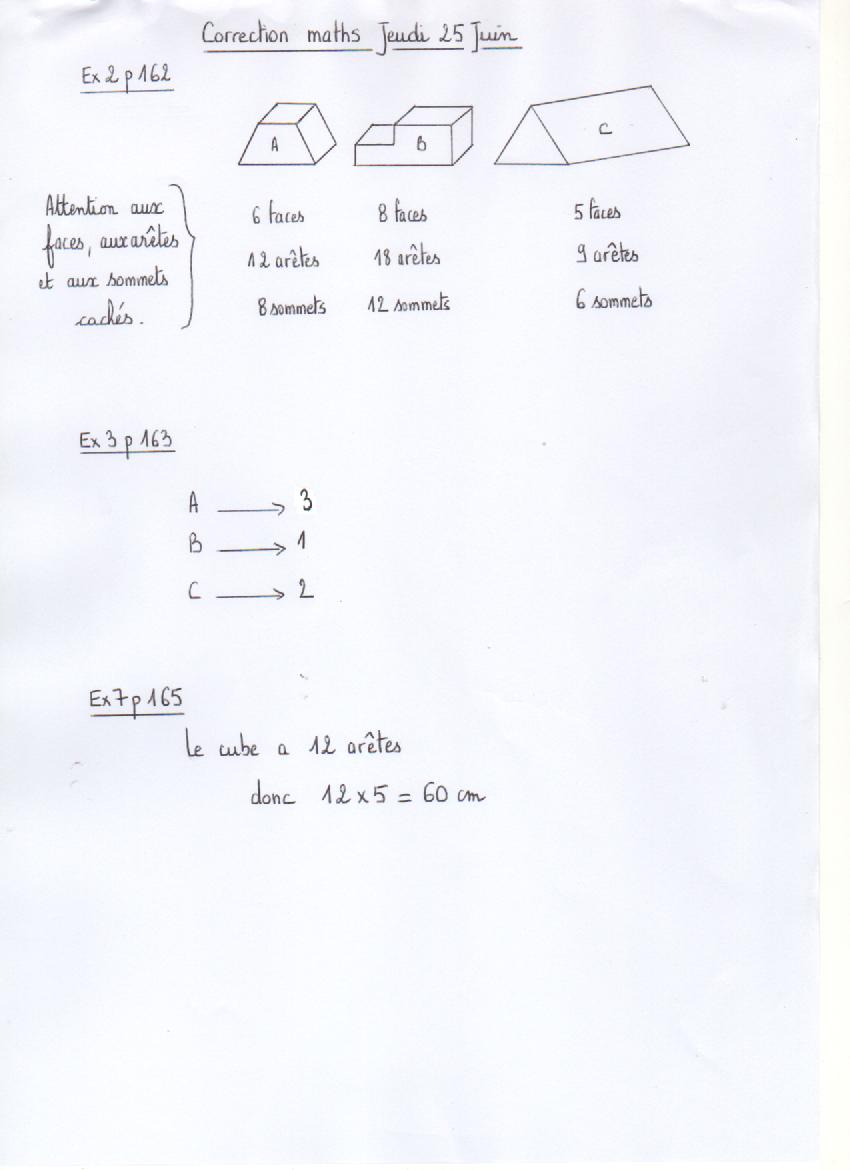 Correction maths Jeudi 25 Juin
Ex 2 p 162
A B C
Attention aux
faces, aux arêtes
et aux sommets
cachés.
6 faces 8 faces 5 faces
12 arêtes 18 arêtes 9 arêtes
8 sommets 12 sommets 6 sommets
Ex 3 p 163
A → 3
B → 1
C → 2
Ex 7 p 165
Le cube a 12 arêtes
donc 12 x 5 = 60 cm